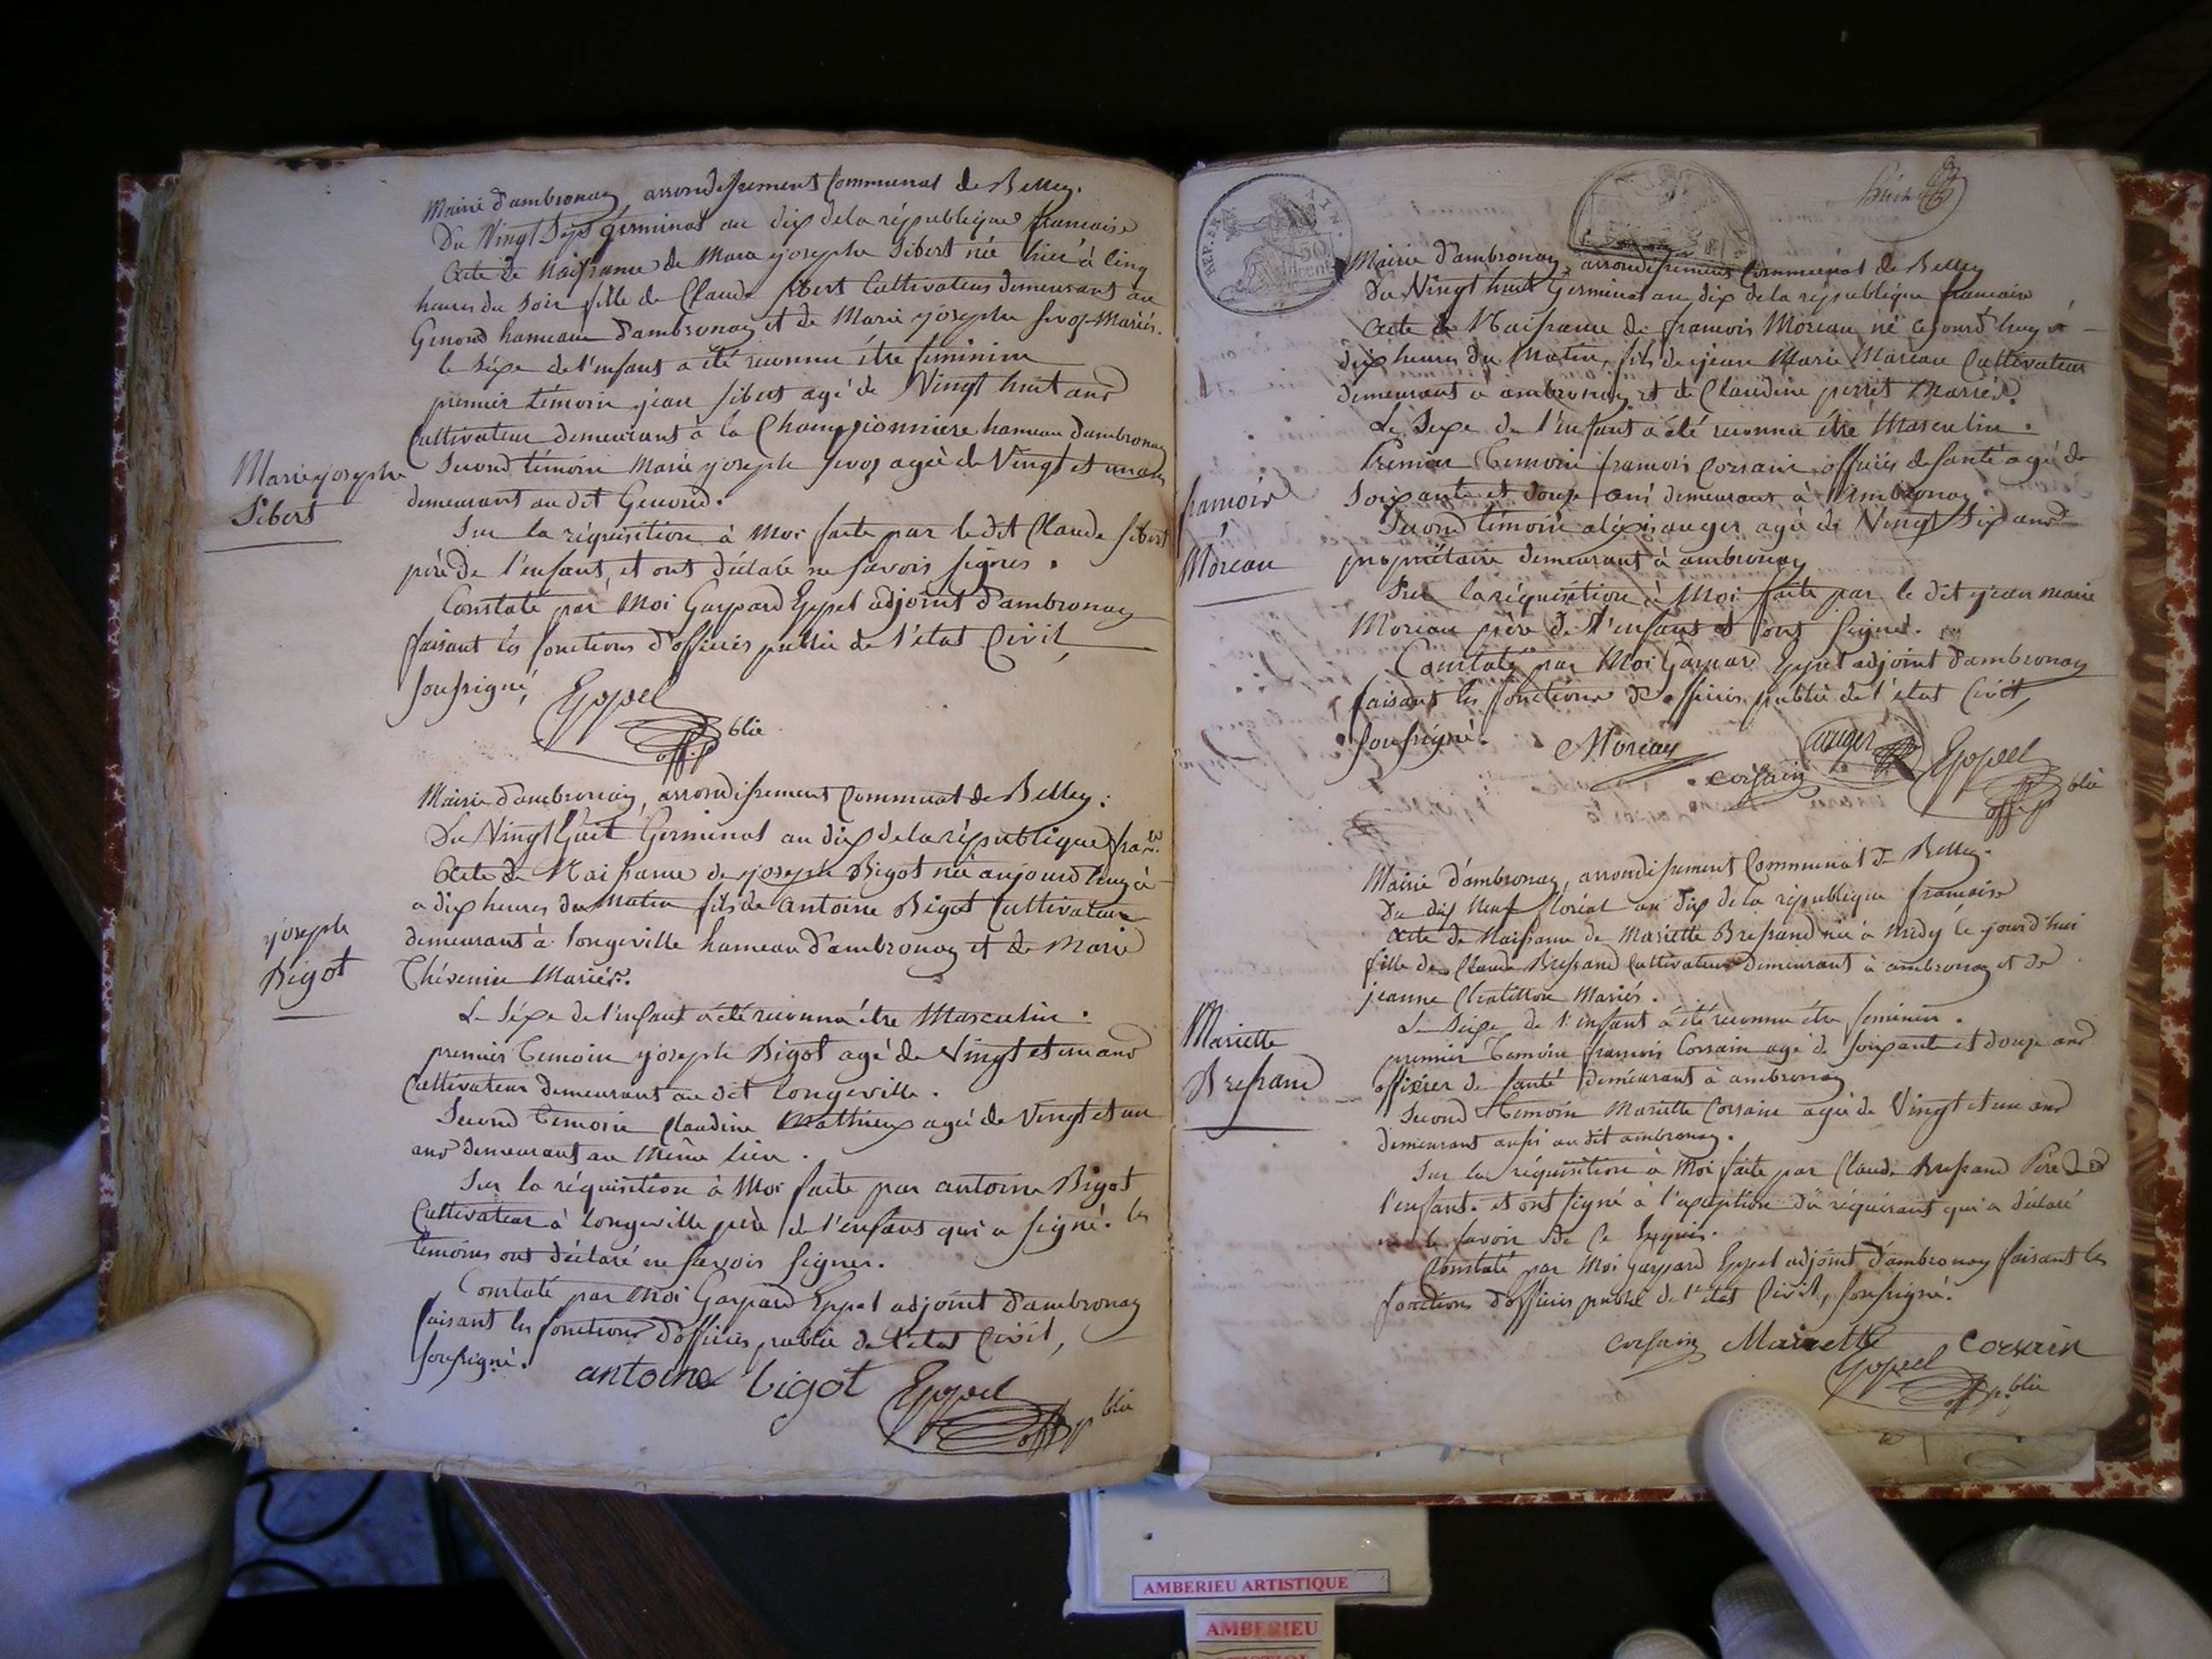 Mairie d'ambronay arrondissement Communal de Belley.
Du Vingt Sept germinal an dix de la république francaise
Acte de Naissance de Marie josephe Sibert née hier à cinq
heures du soir fille de Claude Sibert Cultivateur demeurant au
Genoud hameau d'ambronay et de Marie josephe Mariés.
le séxe de l'enfant a été reconnu être féminin
premier témoin jean Sibert agé de Vingt huit ans
Cultivateur demeurant à la Championniere hameau d'ambronay
Second témoin Marie joseph agée de Vingt et un ans
demeurant au dit Genoud.
Marie josephe
Sibert
Sur la réquisition à Moi faite par le dit Claude Sibert
père de l'enfant, et ont déclaré ne savoir signer.
Constaté par Moi Gaspard Eppel adjoint d'ambronay
faisant les fonctions d'officier public de l'état Civil,
soussigné,
Eppel
off. p blic
Mairie d'ambronay, arrondissement Communal de Belley.
Du Vingt huit Germinal an dix de la république
Acte de Naissance de joseph Bigot né aujourd'huy à
a dix heures du Matin fils de antoine Bigot Cultivateur
demeurant à longeville hameau d'ambronay et de Marie
Thévenin Mariés.
joseph
Bigot
Le Séxe de l'enfant a été reconnu être Masculin.
premier temoin joseph Bigot agé de Vingt et un ans
Cultivateur demeurant au dit longeville.
Second temoin Claudine Mathieux agée de Vingt et un
ans demeurant au Même lieu.
Sur la réquisition à Moi faite par antoine Bigot
Cultivateur à longeville père de l'enfant qui a signé. les
témoins ont déclaré ne savoir signer.
Constaté par Moi Gaspard Eppel adjoint d'ambronay
faisant les fonctions d'officier public de l'état Civil,
soussigné.
antoine bigot
Eppel
off p blic
REP. FRA.
AIN.
50
cent
Mairie d'ambronay, arrondissement Communal de Belley
Du Vingt huit Germinal an dix de la république francaise
Acte de Naissance de francois Moreau né ce jourd'huy à
dix heures du Matin, fils de jean Marie Moreau Cultivateur
demeurant à ambronay et de Claudine perret Mariés.
Le Sexe de l'enfant a été reconnu être Masculin.
Premier Temoin francois Corsain officier de santé agé de
Soixante et douze ans demeurant à Ambronay.
Second témoin aléxis auger agé de Vingt Six ans
propriétaire demeurant à ambronay
francois
Moreau
Sur la réquisition à Moi faite par le dit jean marie
Moreau père de l'enfant et ont signé.
Constaté par Moi Gaspard Eppel adjoint d'ambronay
faisant les fonctions d'officier public de l'état Civil,
soussigné.
Moreau
auger
corsain
Eppel
off. p blic
Mairie d'ambronay, arrondissement Communal de Belley.
Du dix Neuf floréal an dix de la république francaise
Acte de Naissance de Mariette Bressand née à Midy le jourd'hui
fille de Claude Bressand Cultivateur demeurant à ambronay et de
jeanne Chatillon Mariés.
Le Séxe de l'enfant a été reconnu être feminin.
Mariette
Bressand
premier Temoin francois Corsain agé de soixante et douze ans
officier de santé demeurant à ambronay
Second Temoin Mariette Corsain agée de Vingt et un ans
demeurant aussi au dit ambronay.
Sur la réquisition à Moi faite par Claude Bressand Père de
l'enfant. et ont signé à l'exception du réquérant qui a déclaré
ne le savoir de ce
Constaté par Moi Gaspard Eppel adjoint d'ambronay faisant les
fonctions d'officier public de l'état Civil, soussigné.
corsain Mariette corsain
Eppel
off p. blic
AMBERIEU ARTISTIQUE
AMBERIEU